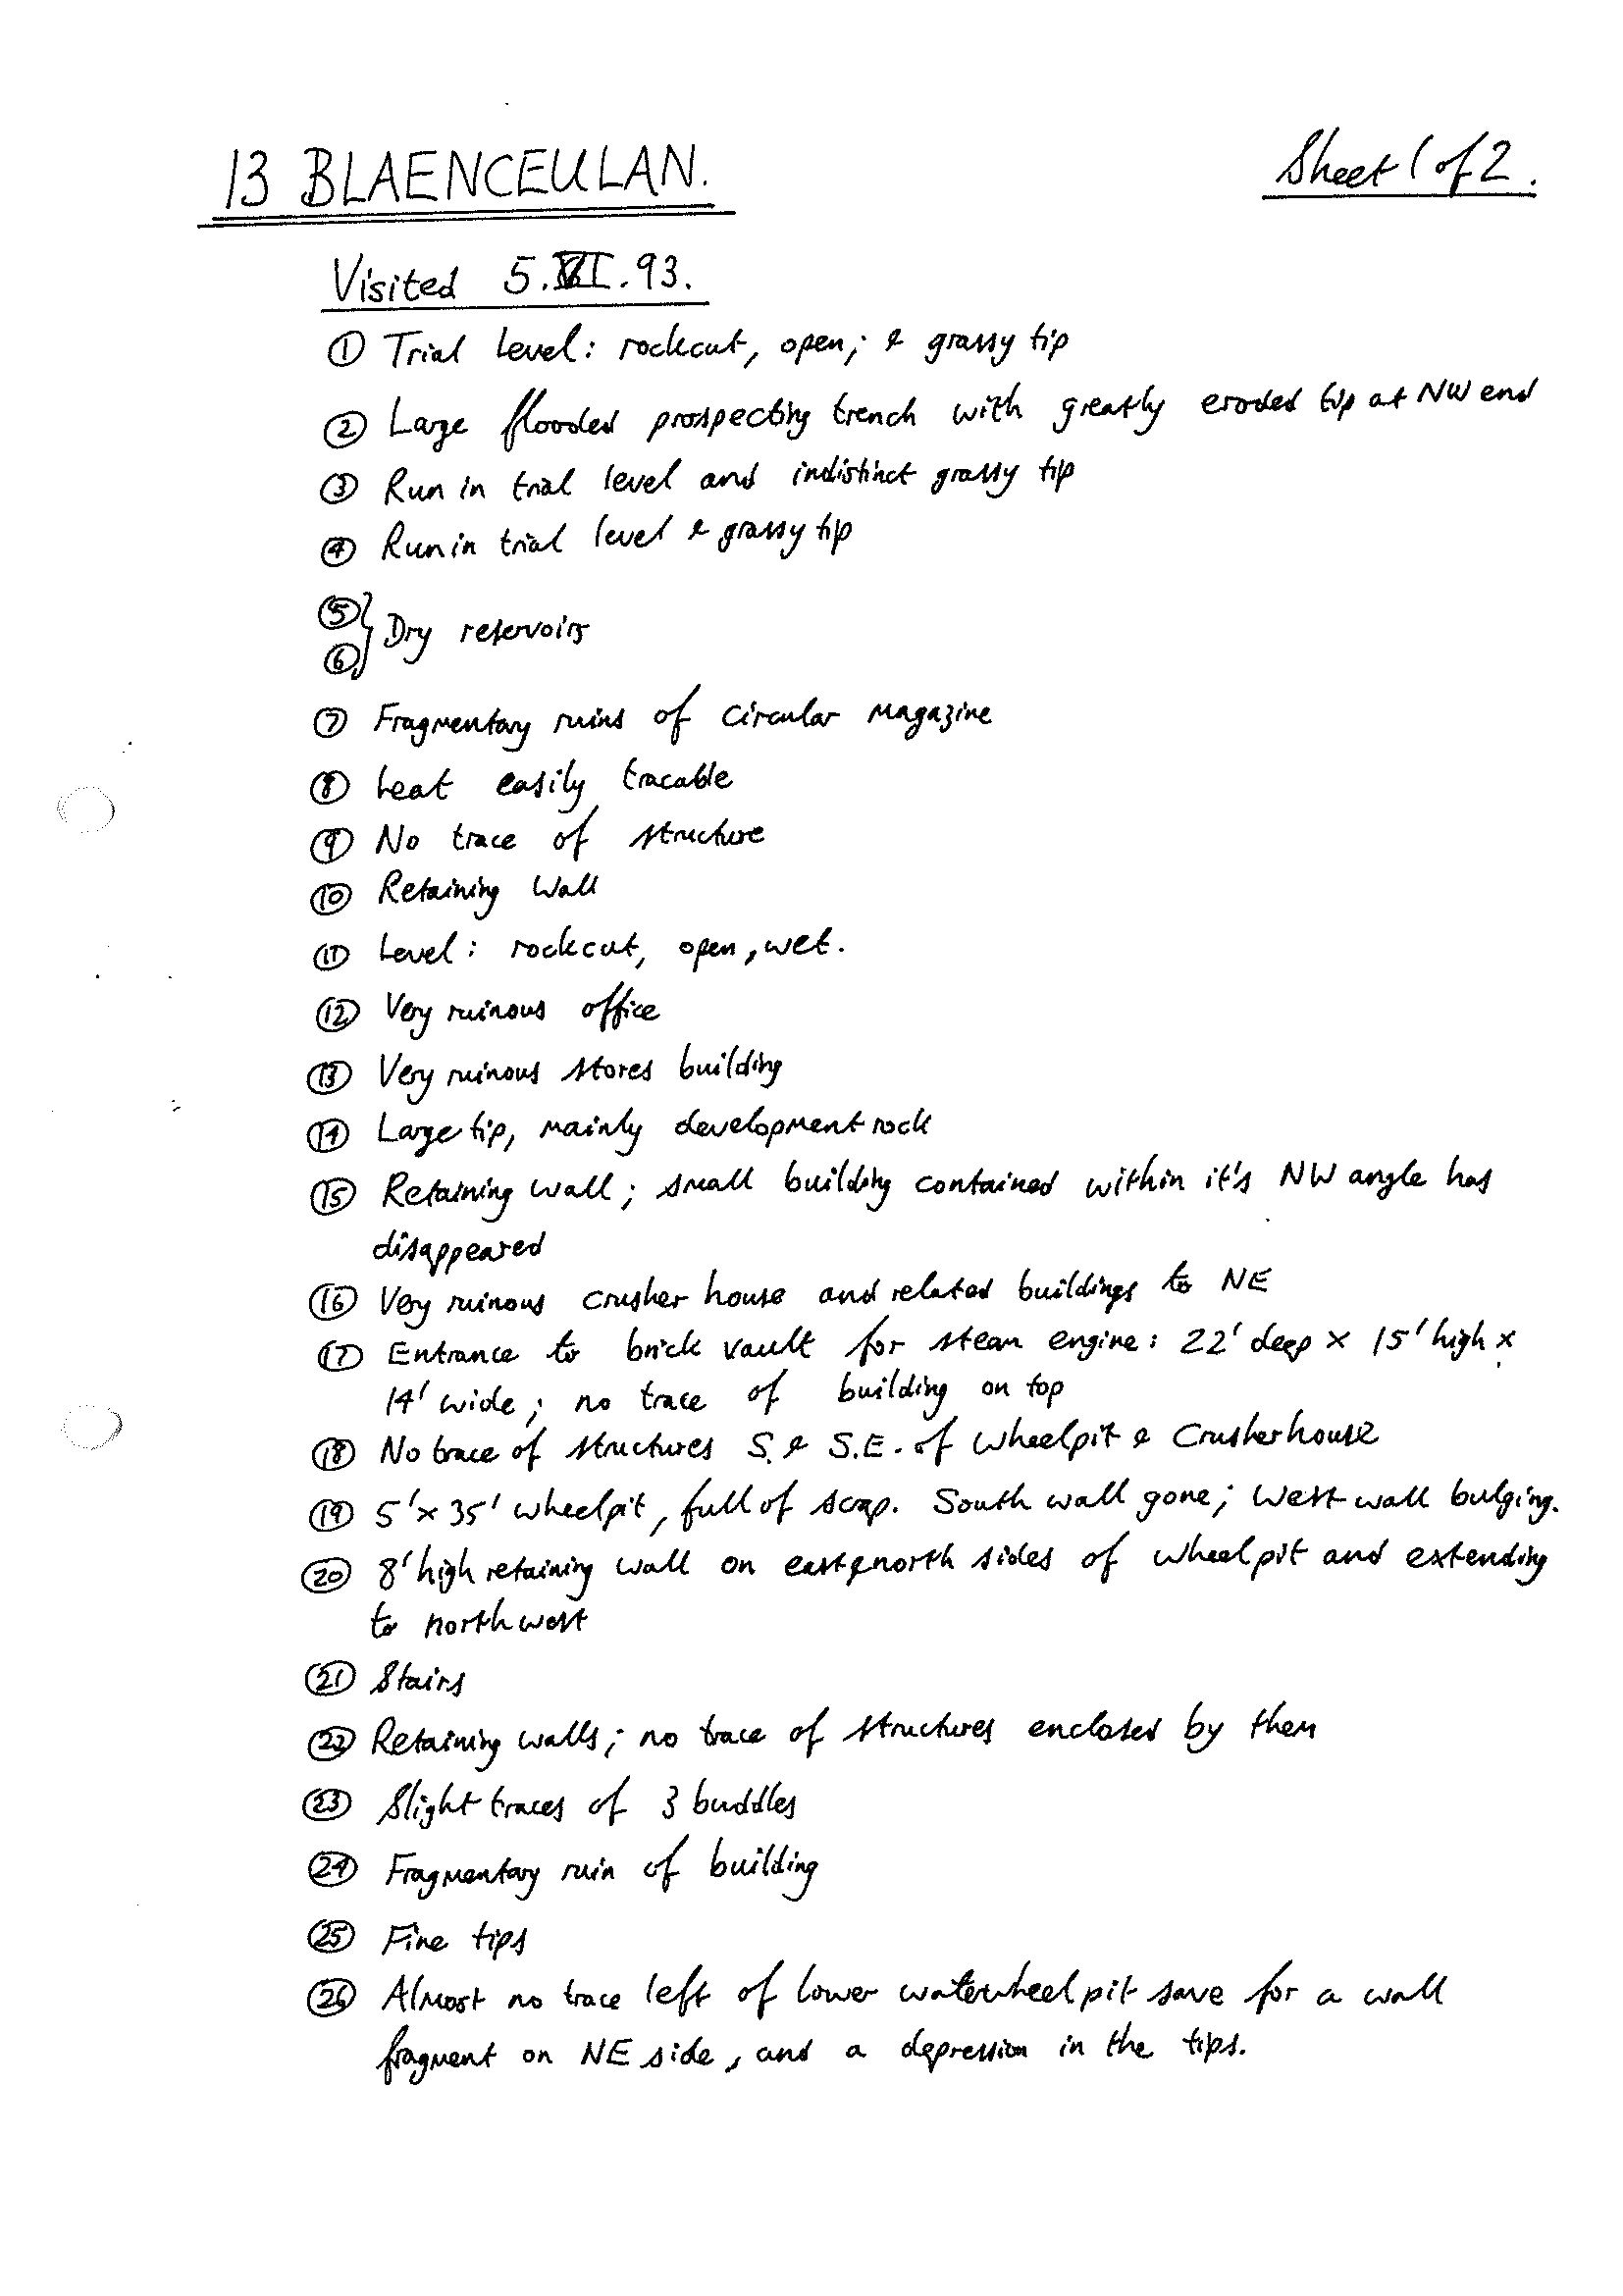 13 BLAENCEULAN.
Sheet 1 of 2.
Visited 5.VI.93.
① Trial Level: rockcut, open; & grassy tip
② Large flooded prospecting trench with greatly eroded tip at NW end
③ Run in trial level and indistinct grassy tip
④ Run in trial level & grassy tip
⑤
⑥ } Dry reservoirs
⑦ Fragmentary ruins of circular magazine
⑧ Leat easily tracable
⑨ No trace of structure
⑩ Retaining Wall
⑪ Level: rockcut, open, wet.
⑫ Very ruinous office
⑬ Very ruinous stores building
⑭ Large tip, mainly development rock
⑮ Retaining wall; small building contained within it's NW angle has
disappeared
⑯ Very ruinous crusher house and related buildings to NE
⑰ Entrance to brick vault for steam engine: 22' deep x 15' high x
14' wide; no trace of building on top
⑱ No trace of structures S. & S.E. of wheelpit & Crusherhouse
⑲ 5' x 35' wheelpit, full of scrap. South wall gone; West wall bulging.
⑳ 8' high retaining wall on east & north sides of wheelpit and extending
to northwest
㉑ Stairs
㉒ Retaining walls; no trace of structures enclosed by them
㉓ Slight traces of 3 buddles
㉔ Fragmentary ruin of building
㉕ Fine tips
㉖ Almost no trace left of lower waterwheel pit save for a wall
fragment on NE side, and a depression in the tips.